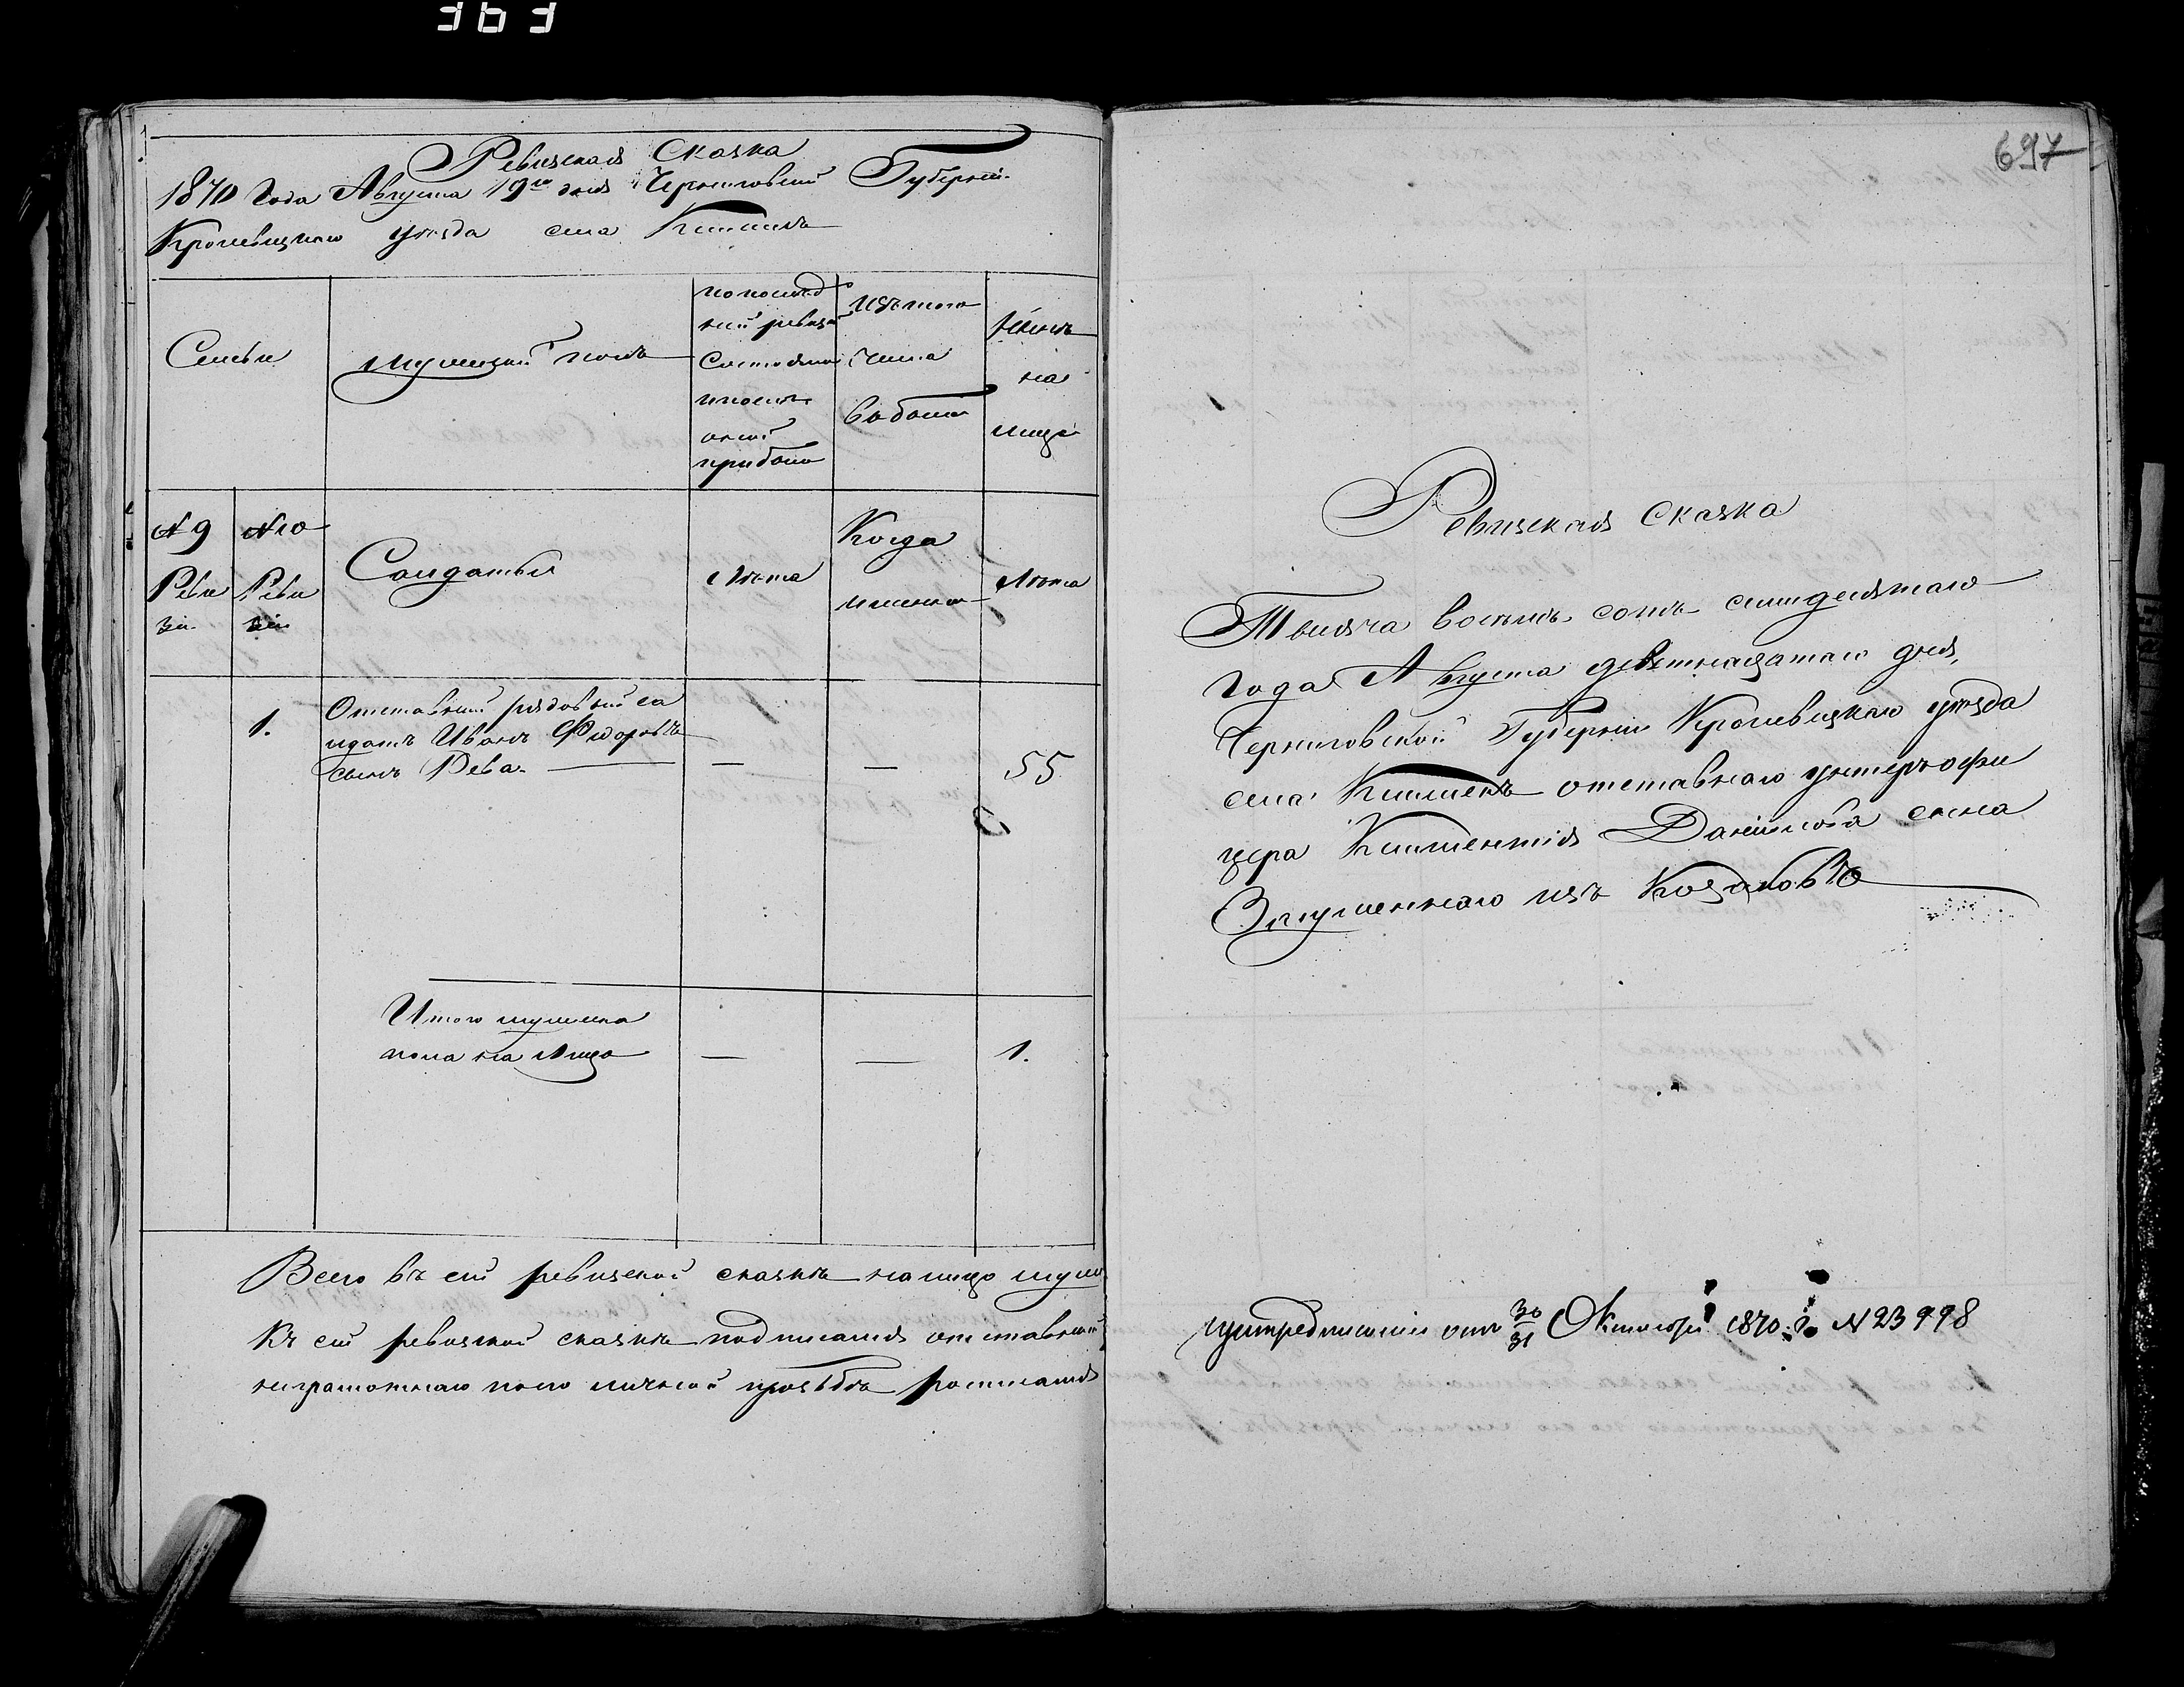 363
Ревизская Сказка
1870 Года Августа 19го дня Черниговской Губерніи
Кролевецкаго уѣзда села
Семьи
мужеский полъ
по послѣд
ней ревизіи
Состояло
и послѣ
оной
прибыло
Изъ того
числа
выбыло
Нынѣ
на
лице
№ 9
Реви
зіи
№ 10
Реви
зіи
Солдатъи
Лѣта
Когда
именно
Лѣта
1.
Отставный рядовый со
лдатъ Иванъ Федоровъ
сынъ Рева.
—
—
55
Итого мужска
пола на Лице
—
—
1.
Всего въ сей ревизской сказкѣ на лице муж
Къ сей ревизской сказкѣ подписался отставный
неграмотнаго по его личной прозьбѣ росписался
697
Ревизская Сказка
Тысяча восемь сотъ семидесятаго
Года Августа девятнадцатаго дня,
Черниговской Губерніи Кролевецкаго уѣзда
села отставнаго унтеръ офи
цера Климентія Даніилова сына
изъ Козаковъ
при предписаніи отъ 30/31 Октября 1870 г. № 23998